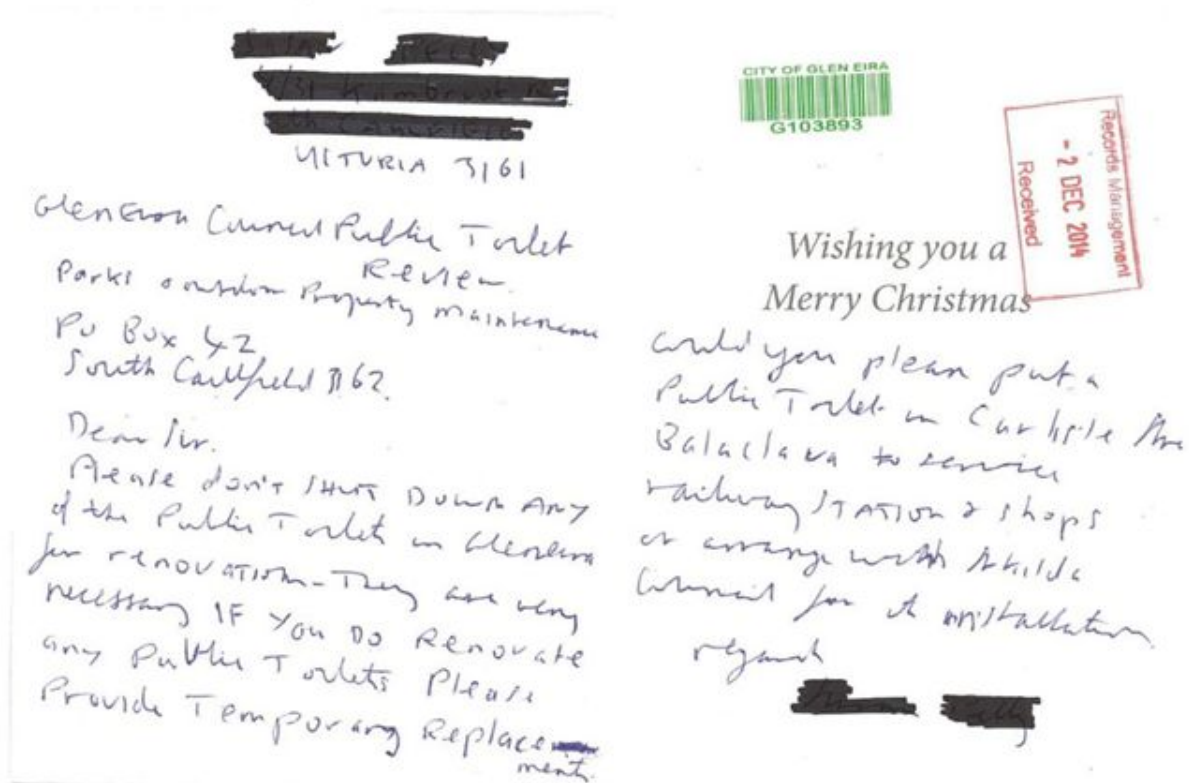 VICTORIA 3161
Glen Eira Council Public Toilet
Review.
Parks outdoor Property Maintenance
PO Box 42
South Caulfield 3162.
Dear Sir.
Please don't SHUT DOWN ANY
of the Public Toilets in Gleneira
for renovation - They are very
necessary IF You DO Renovate
any Public Toilets Please
Provide Temporary Replace
ments.
CITY OF GLEN EIRA
G103893
Records Management
- 2 DEC 2014
Received
Wishing you a
Merry Christmas
Could you please put a
Public Toilet in Carlisle
Balaclava to service
railway STATION & shops
or arrange with St Kilda
Council for installation
regards